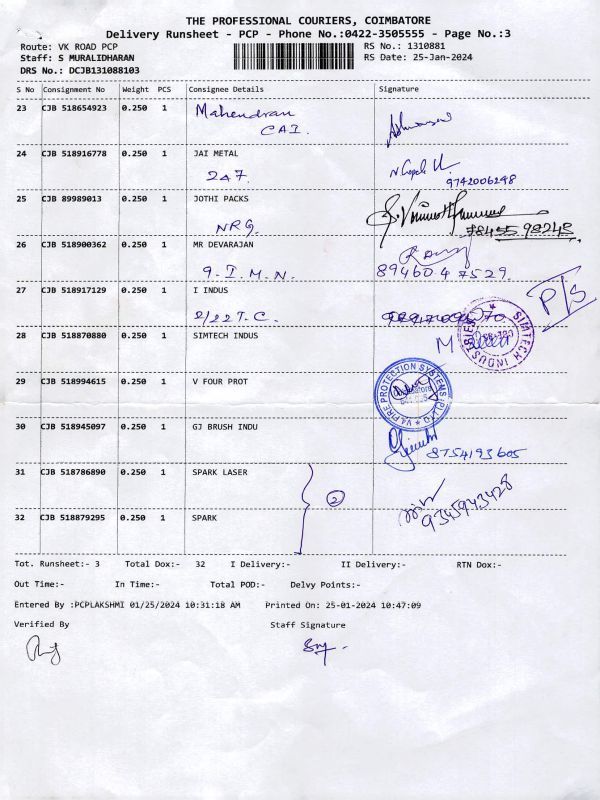 THE PROFESSIONAL COURIERS, COIMBATORE
Delivery Runsheet - PCP - Phone No.:0422-3505555 - Page No.:3
Route: VK ROAD PCP
RS No.: 1310881
Staff: S MURALIDHARAN
RS Date: 25-Jan-2024
DRS No.: DCJB131088103
S No Consignment No Weight PCS Consignee Details Signature
23 CJB 518654923 0.250 1 Mahendran
CAI.
24 CJB 518916778 0.250 1 JAI METAL
247. 9742006248
25 CJB 89989013 0.250 1 JOTHI PACKS
NRG.
26 CJB 518900362 0.250 1 MR DEVARAJAN
9.I.M.N. 8946047529.
27 CJB 518917129 0.250 1 I INDUS
P/S
2/22 T.C.
28 CJB 518870880 0.250 1 SIMTECH INDUS
SIMTECH INDUSTRIES
29 CJB 518994615 0.250 1 V FOUR PROT
V4 FIRE PROTECTION SYSTEMS
30 CJB 518945097 0.250 1 GJ BRUSH INDU
8754193605
31 CJB 518786890 0.250 1 SPARK LASER
2
9345943428
32 CJB 518879295 0.250 1 SPARK
Tot. Runsheet:- 3 Total Dox:- 32 I Delivery:- II Delivery:- RTN Dox:-
Out Time:- In Time:- Total POD:- Delvy Points:-
Entered By :PCPLAKSHMI 01/25/2024 10:31:18 AM Printed On: 25-01-2024 10:47:09
Verified By Staff Signature